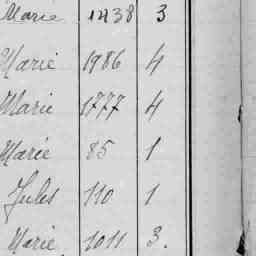 Marie 1438 3
Marie 1986 4
Marie 1777 4
Marie 85 1
Jules 110 1
Marie 1011 3.